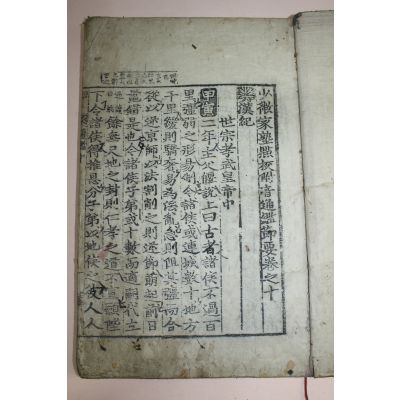 少微家塾點校附音通鑑節要卷之十
漢紀
世宗孝武皇帝中
甲寅二年主父偃說上曰古者諸侯不過百
里彊弱之形易制今諸侯或連城數十地方
千里緩則驕奢易為淫亂急則阻其彊而合
從以逆京師以法割削之則逆節萌起前日
晁錯是也今諸侯子弟或十數而適嗣代立
餘無尺地之封則仁孝之道不宣願陛
下令諸侯得推恩分子弟以地侯之彼人人